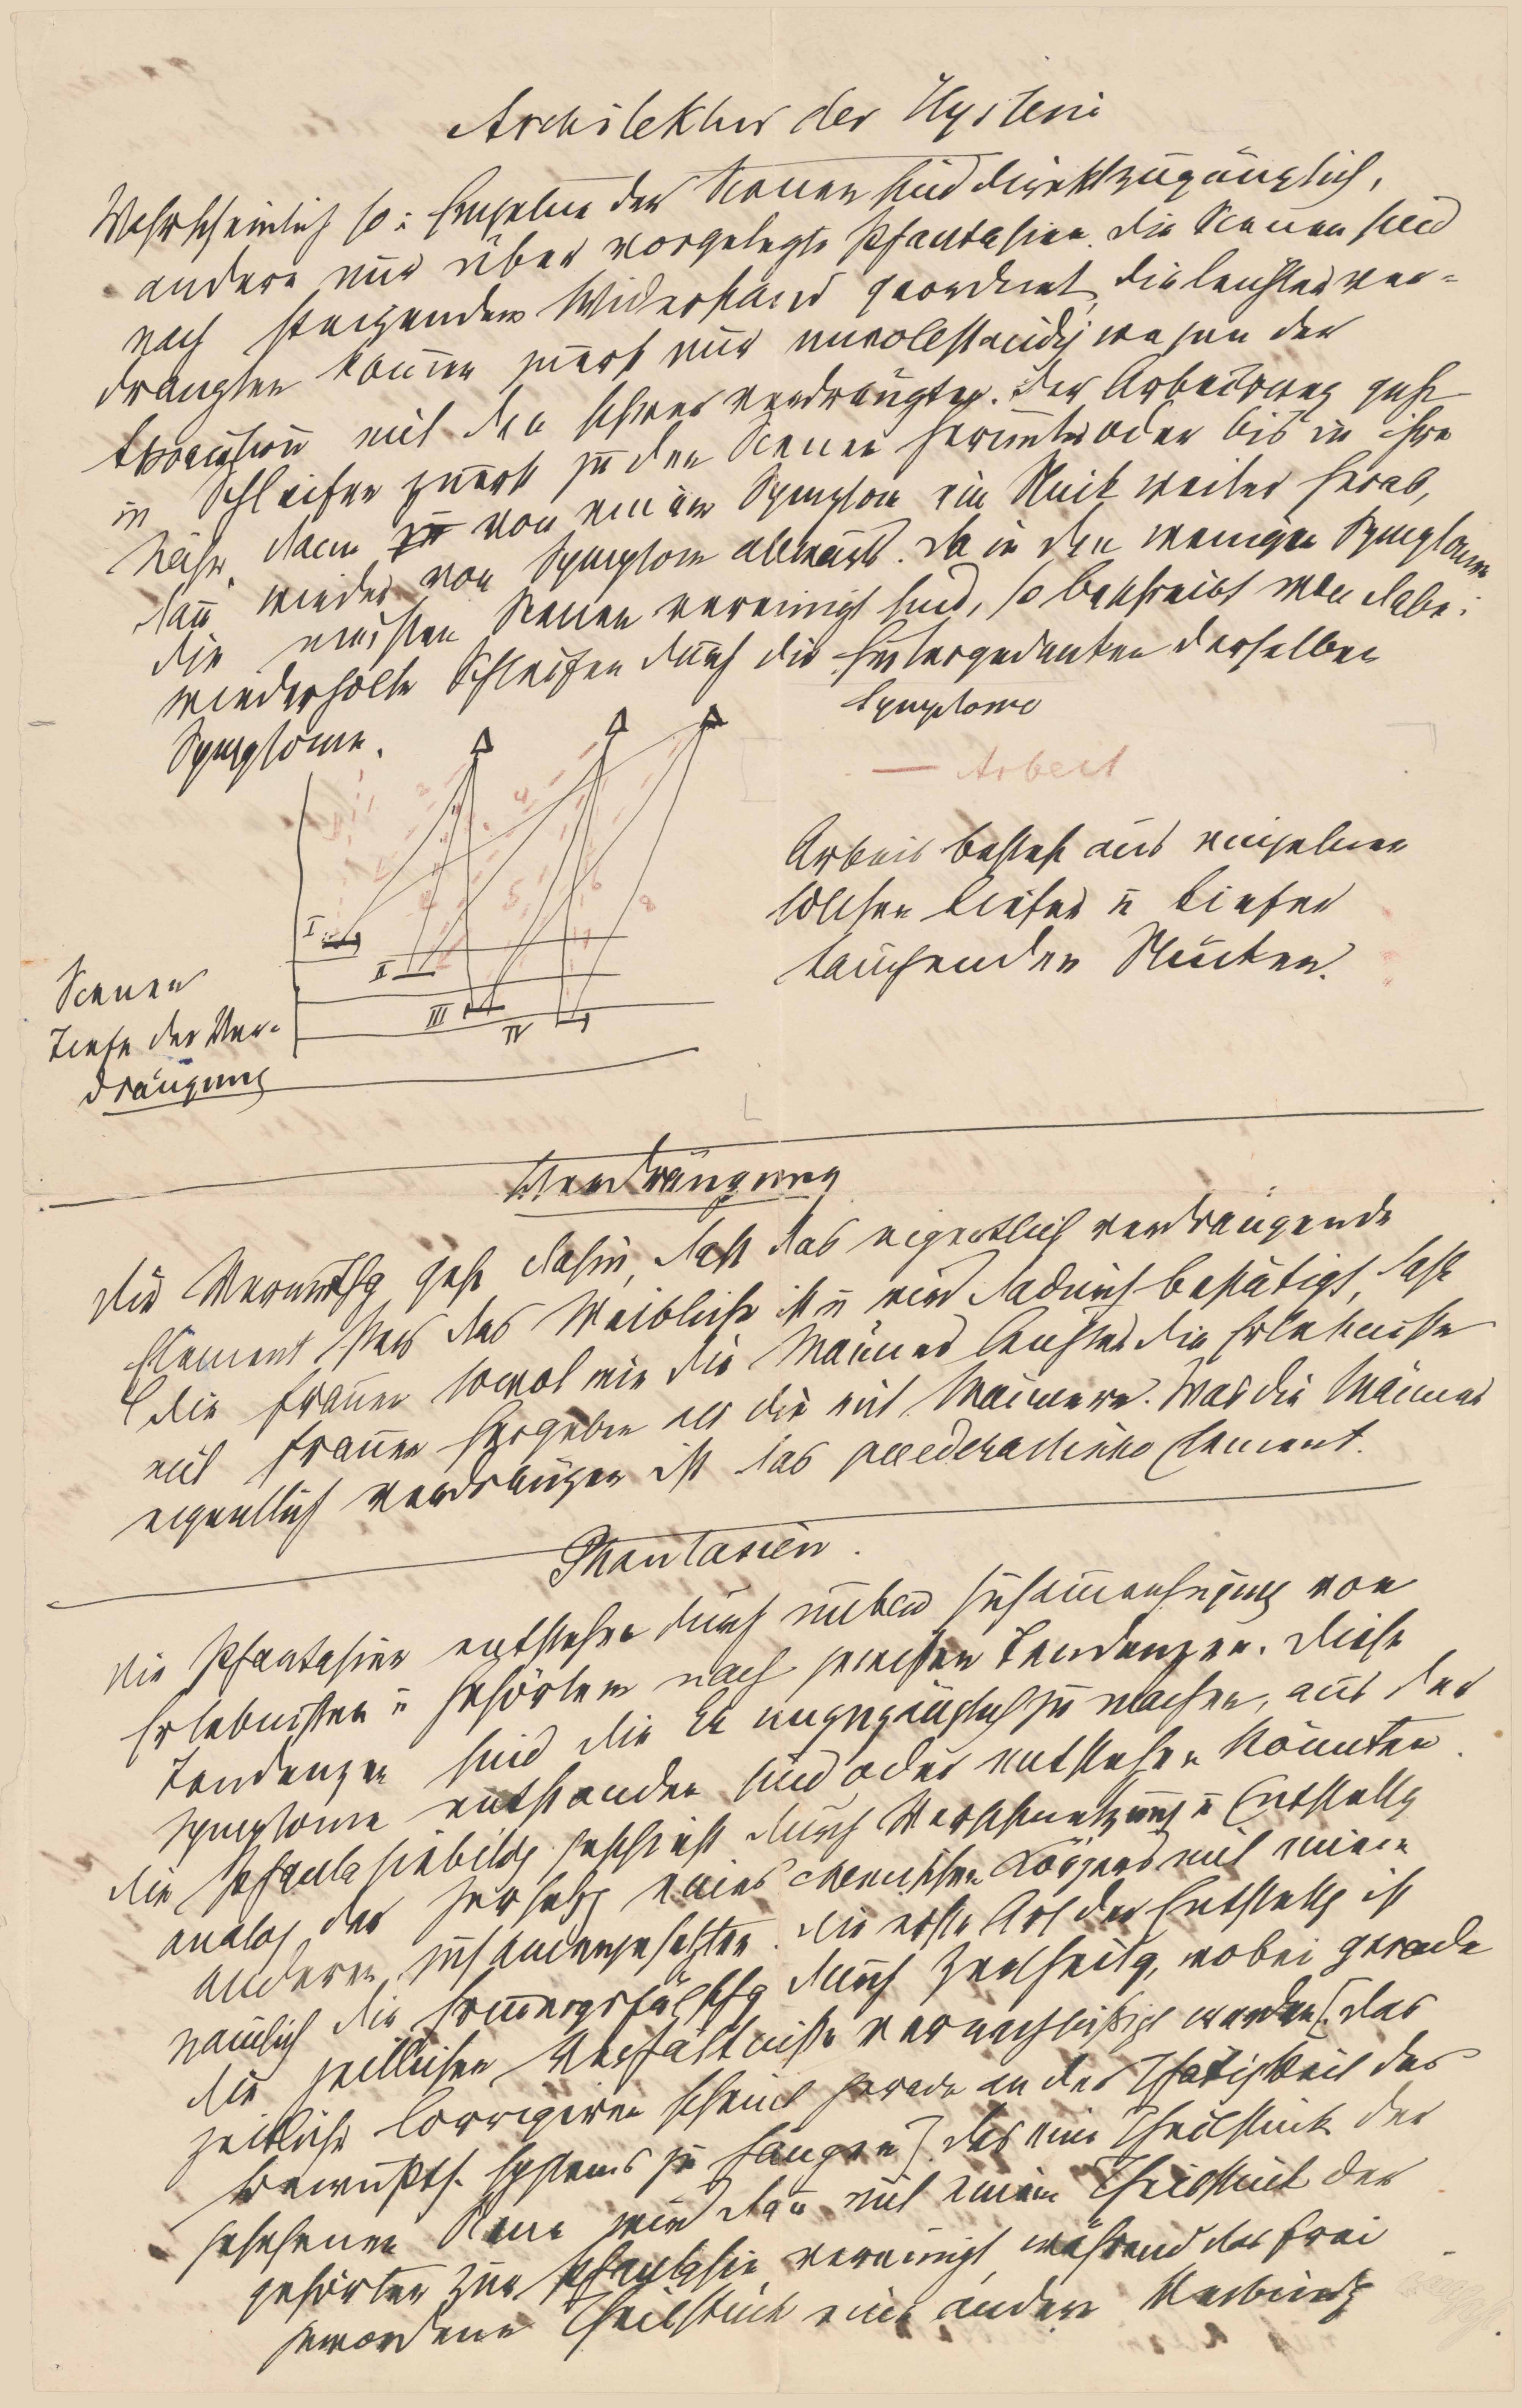 Architektur der Hysterie
Wahrscheinlich so: Einzelne der Scenen sind direkt zugänglich,
andere nur über vorgelegte Phantasien. Die Scenen sind
nach steigendem Widerstand geordnet, die leichter ver-
drängten kommen zuerst nur unvollständig wegen der
Association mit den schwer verdrängten. Der Arbeitsweg geht
in Schleifen zuerst zu den Scenen herunter oder bis in ihre
Nähe, dann zu von einem Symptom ein Stück weiter herab,
dann wieder vom Symptom abwärts. Da in den wenigen Symptomen
die meisten Scenen vereinigt sind, so beschreibt man dabei
wiederholte Schleifen durch die Hintergedanken derselben
Symptome.
Symptome
— Arbeit
1
2
4
3
5
6
8
7
Arbeit besteht aus einzelnen
solchen tiefer u tiefer
tauchenden Stücken.
I
II
III
IV
Scenen
Tiefe der Ver-
drängung
Verdrängung
Die Vermuthg geht dahin, daß das eigentlich verdrängende
Element stets das Weibliche ist u wird dadurch bestätigt, daß
die Frauen sowol wie die Männer leichter die Erlebnisse
mit Frauen hergeben als die mit Männern. Was die Männer
eigentlich verdrängen ist das paederastische Element.
Phantasien.
Die Phantasien entstehen durch unbew Zusammenfügung von
Erlebnissen u Gehörtem nach gewissen Tendenzen. Diese
Tendenzen sind die Er unzugänglich zu machen, aus der
Symptome entstanden sind oder entstehen könnten.
Die Phantasiebildg geschieht durch Verschmelzung u Entstellg
analog der Zersetzg eines chemischen Körpers mit einem
anderen zusammengesetzten. Die erste Art der Entstellg ist
nämlich die Erinnerungsfälschg durch Zertheilg, wobei gerade
die zeitlichen Verhältnisse vernachlässigt werden. [Das
zeitliche Corrigiren scheint gerade an der Thätigkeit des
Bewußts. systems zu hängen]. Das eine Theilstück der
gesehenen Scene wird dann mit einem Theilstück der
gehörten zur Phantasie vereinigt, während das frei
gewordene Theilstück eine andere Verbindg